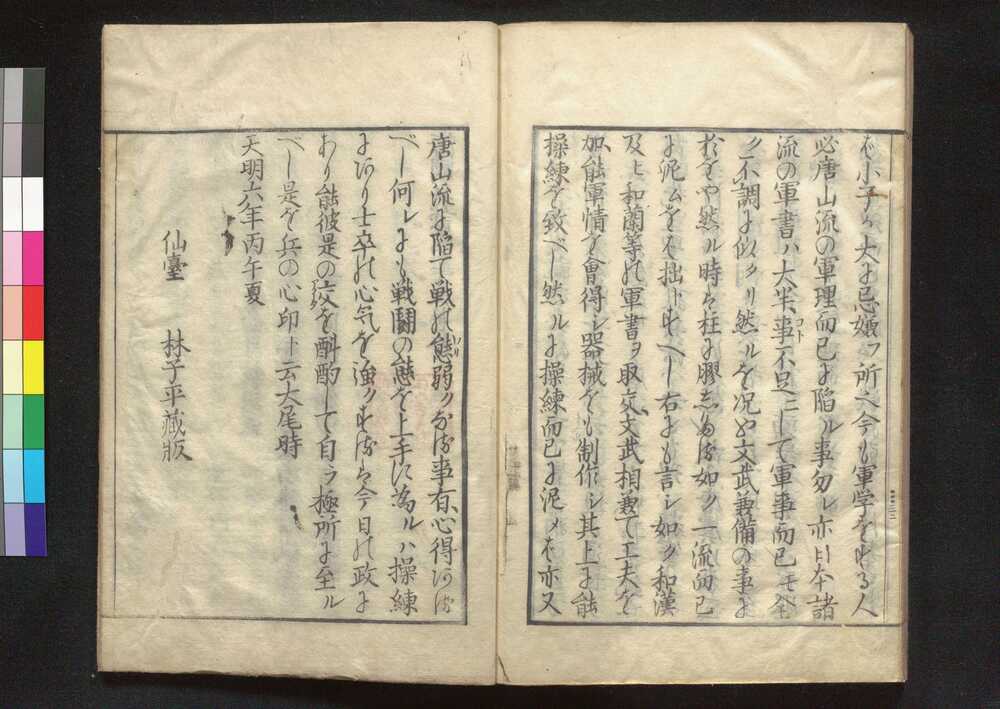 ば小子が大に忌嫌フ所へ今も軍学をする人
必唐山流の軍理而已に陥ル事勿レ亦日本諸
流の軍書ハ大米事一不足ニして軍事而已モ全
ク不調に似タリ然ルを況や文武兼備の事に
於をや然ル時は柱に膠する如ク一流而已
に泥ムをば拙トすべし右にも言シ如ク和漢
及ヒ和蘭等の軍書ヲ取交文武相兼て工夫を
加能軍情を會得シ器械をも制作シ其上に能
操練を致べし然ルに操練而已に泥メば亦又
唐山流に陥て戦の態弱クなる事有心得ある
べし何レにも戦鬪の態を上手に為ルハ操練
にあり士卒の心気を強クするは今日の政に
あり能彼是の意を斟酌して自ラ極所に至ル
べし是を兵の心印ト云大尾時
天明六年丙午夏
仙臺 林子平藏版